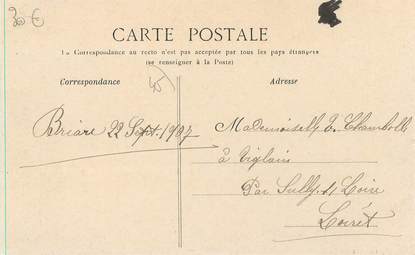 30 €
CARTE POSTALE
La Correspondance au recto n'est pas acceptée par tous les pays étrangers
(se renseigner à la Poste)
Correspondance
45
Adresse
Briare 22 Sept. 1907
Mademoiselle
à Viglain
Par Sully s/ Loire
Loiret